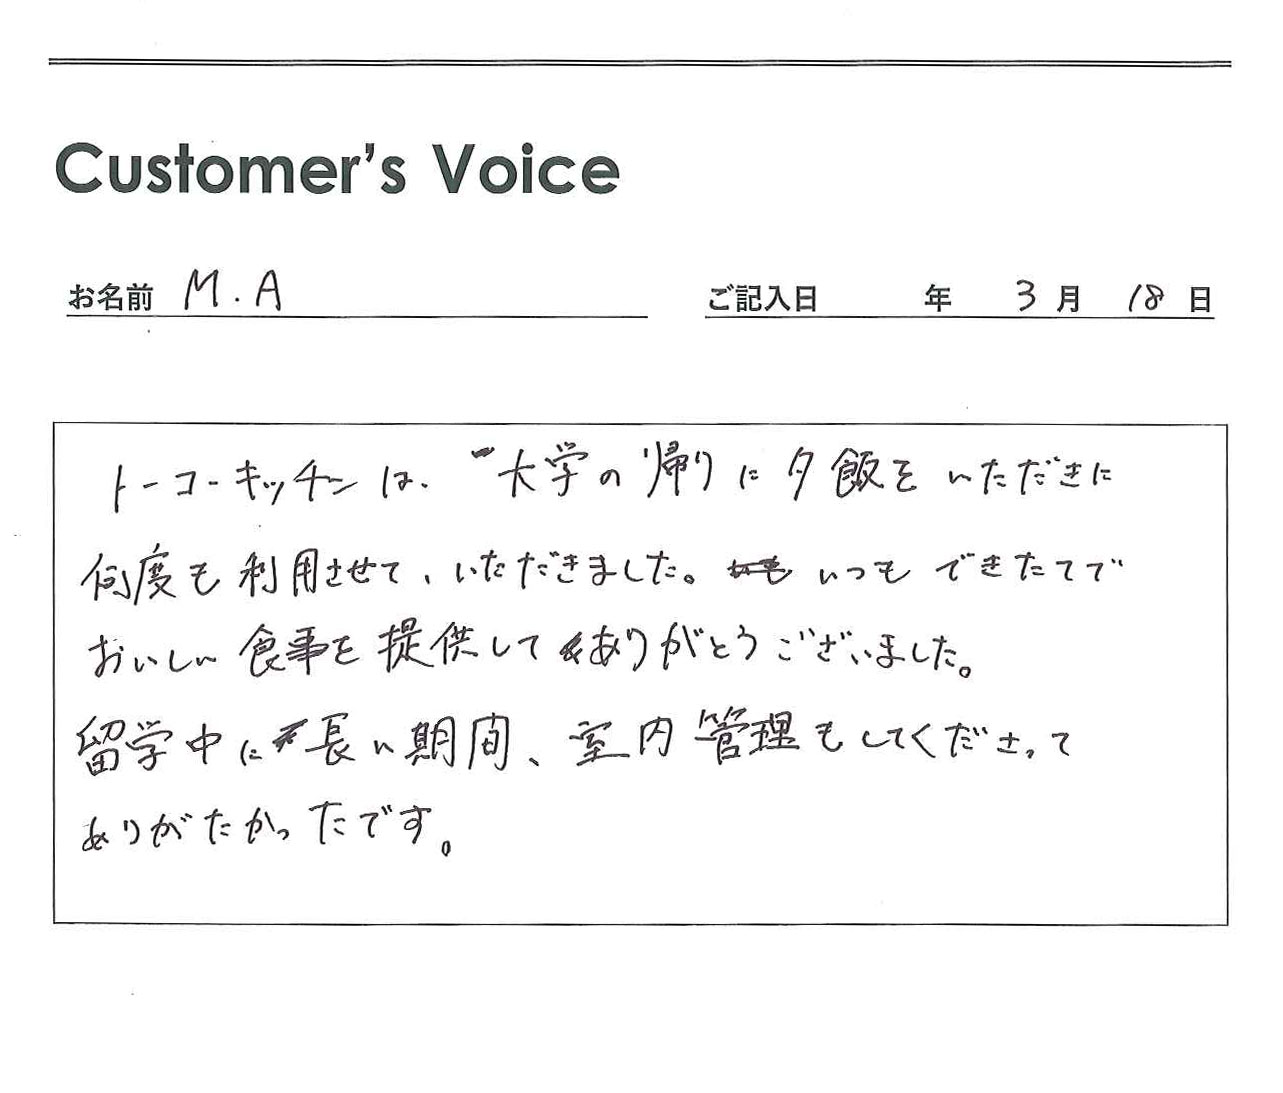 Customer's Voice
お名前 M.A
ご記入日 年 3月 18日
トーコーキッチンは、大学の帰りに夕飯をいただきに
何度も利用させて、いただきました。いつもできたてで
おいしい食事を提供してありがとうございました。
留学中に長い期間、室内管理もしてくださって
ありがたかったです。